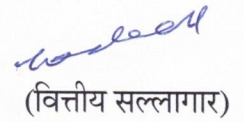 (वित्तीय सल्लागार)